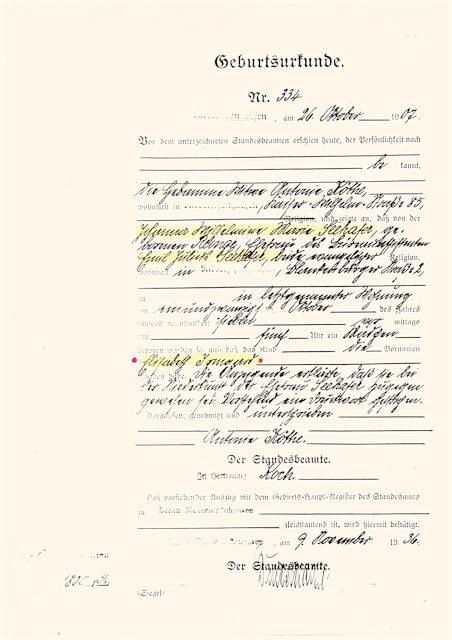 Geburtsurkunde.
Nr. 334
am 26. Oktober 1907.
Vor dem unterzeichneten Standesbeamten erschien heute, der Persönlichkeit nach
be kannt,
die Hebamme Witwe Antonie Köthe,
wohnhaft in Kaiser-Wilhelm-Straße 85,
Religion, und zeigte an, daß von der
Johanna Wilhelmine Marie Seehafer, ge-
borenen Ehefrau des
Emil Julius Seehafer, beide evangelischer Religion,
wohnhaft in Blankenburger Straße 2,
in letztgenannter Wohnung
am einundzwanzigsten Oktober des Jahres
tausend neunhundert sieben vor mittags
um fünf Uhr ein Mädchen
geboren worden sei und daß das Kind die Vornamen
Elisabeth Irmgard
erhalten habe. Die Anzeigende erklärte, daß sie bei
der Niederkunft der Ehefrau Seehafer zugegen
gewesen sei. Vorstehend ein Druckwort gestrichen.
Vorgelesen, genehmigt und unterschrieben
Antonie Köthe.
Der Standesbeamte.
In Vertretung Koch.
Daß vorstehender Auszug mit dem Geburts-Haupt-Register des Standesamts
zu
gleichlautend ist, wird hiermit bestätigt.
am 9. November 1936.
Der Standesbeamte.
(Siegel)